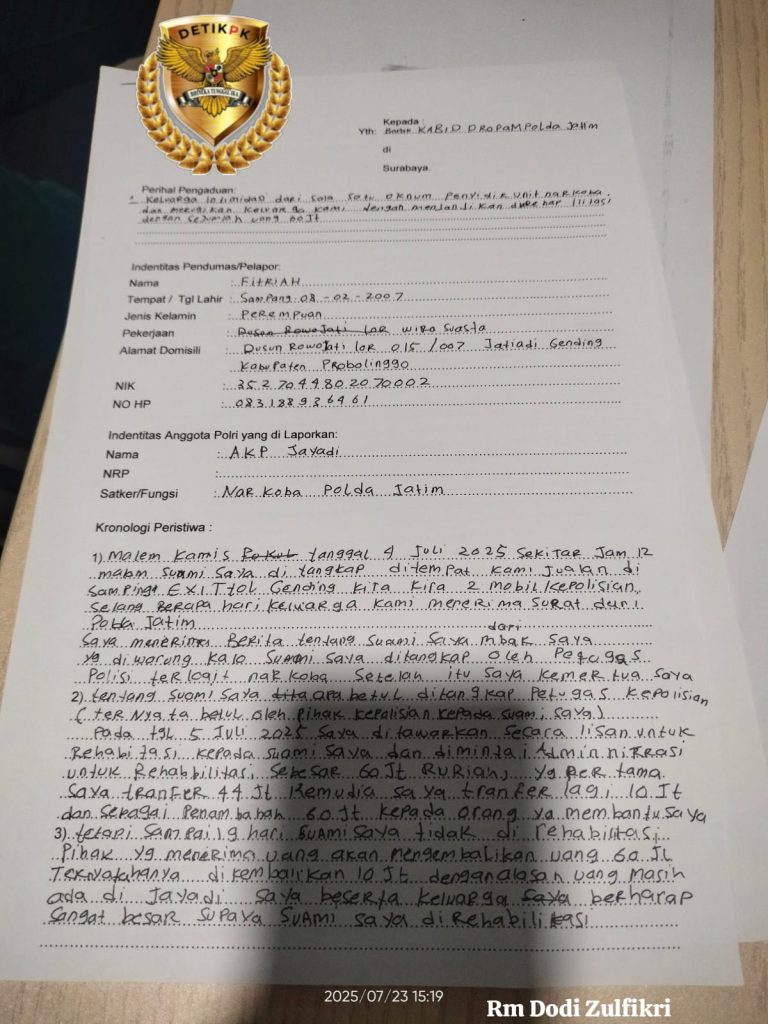 DETIKPK
BHINNEKA TUNGGAL IKA
Kepada :
Yth: Bapak KABID PROPAM Polda Jatim
di
Surabaya.
Perihal Pengaduan:
Keluarga intimidasi dari sala satu oknum Penyidik unit narkoba
dan merugikan keluarga kami dengan menjandikan direhabilitasi
dengan sejumlah uang 60 Jt
Indentitas Pendumas/Pelapor:
Nama : FITRIAH
Tempat / Tgl Lahir : Sampang 08-02-2007
Jenis Kelamin : Perempuan
Pekerjaan : Dusun Rowojati lor wira suasta
Alamat Domisili : Dusun Rowojati lor 015/007 Jatiadi Gending
Kabupaten Probolinggo
NIK : 3527044802070002
NO HP : 083188936461
Indentitas Anggota Polri yang di Laporkan:
Nama : AKP Jayadi
NRP :
Satker/Fungsi : Narkoba Polda Jatim
Kronologi Peristiwa :
1) Malem Kamis tanggal 4 Juli 2025 sekitar Jam 12
malam suami saya di tangkap ditempat kami jualan di
samping EXIT tol Gending kita kira 2 mobil kepolisian
selang berapa hari keluarga kami menerima surat dari
Polda Jatim dari
saya menerima Berita tentang suami saya mbak saya
yg diwarung kalo suami saya ditangkap oleh Petugas
Polisi terlogit narkoba. Setelah itu saya kemertua saya
2) tentang suami saya betul ditangkap Petugas Kepolisian
(ternyata betul oleh Pihak Kepolisian kepada suami saya)
Pada tgl 5 Juli 2025 saya ditawarkan secara lisan untuk
Rehabitasi kepada suami saya dan dimintai Adminnikrasi
untuk Rehabilitasi sebesar 60 Jt RuRiah, yg pertama
saya tranfer 44 Jt kemudia saya tranfer lagi 10 Jt
dan sebagai Penambahan 60 Jt kepada orang yg membantu saya
3) tetapi sampai 19 hari suami saya tidak di rehabilitasi.
Pihak yg menerima uang akan mengembalikan uang 60 Jt
Teknyatahanya dikembalikan 10 Jt dengan alasan uang masih
ada di Jayadi saya beserta keluarga saya berharap
sangat besar supaya suami saya diRehabilikasi
2025/07/23 15:19
Rm Dodi Zulfikri